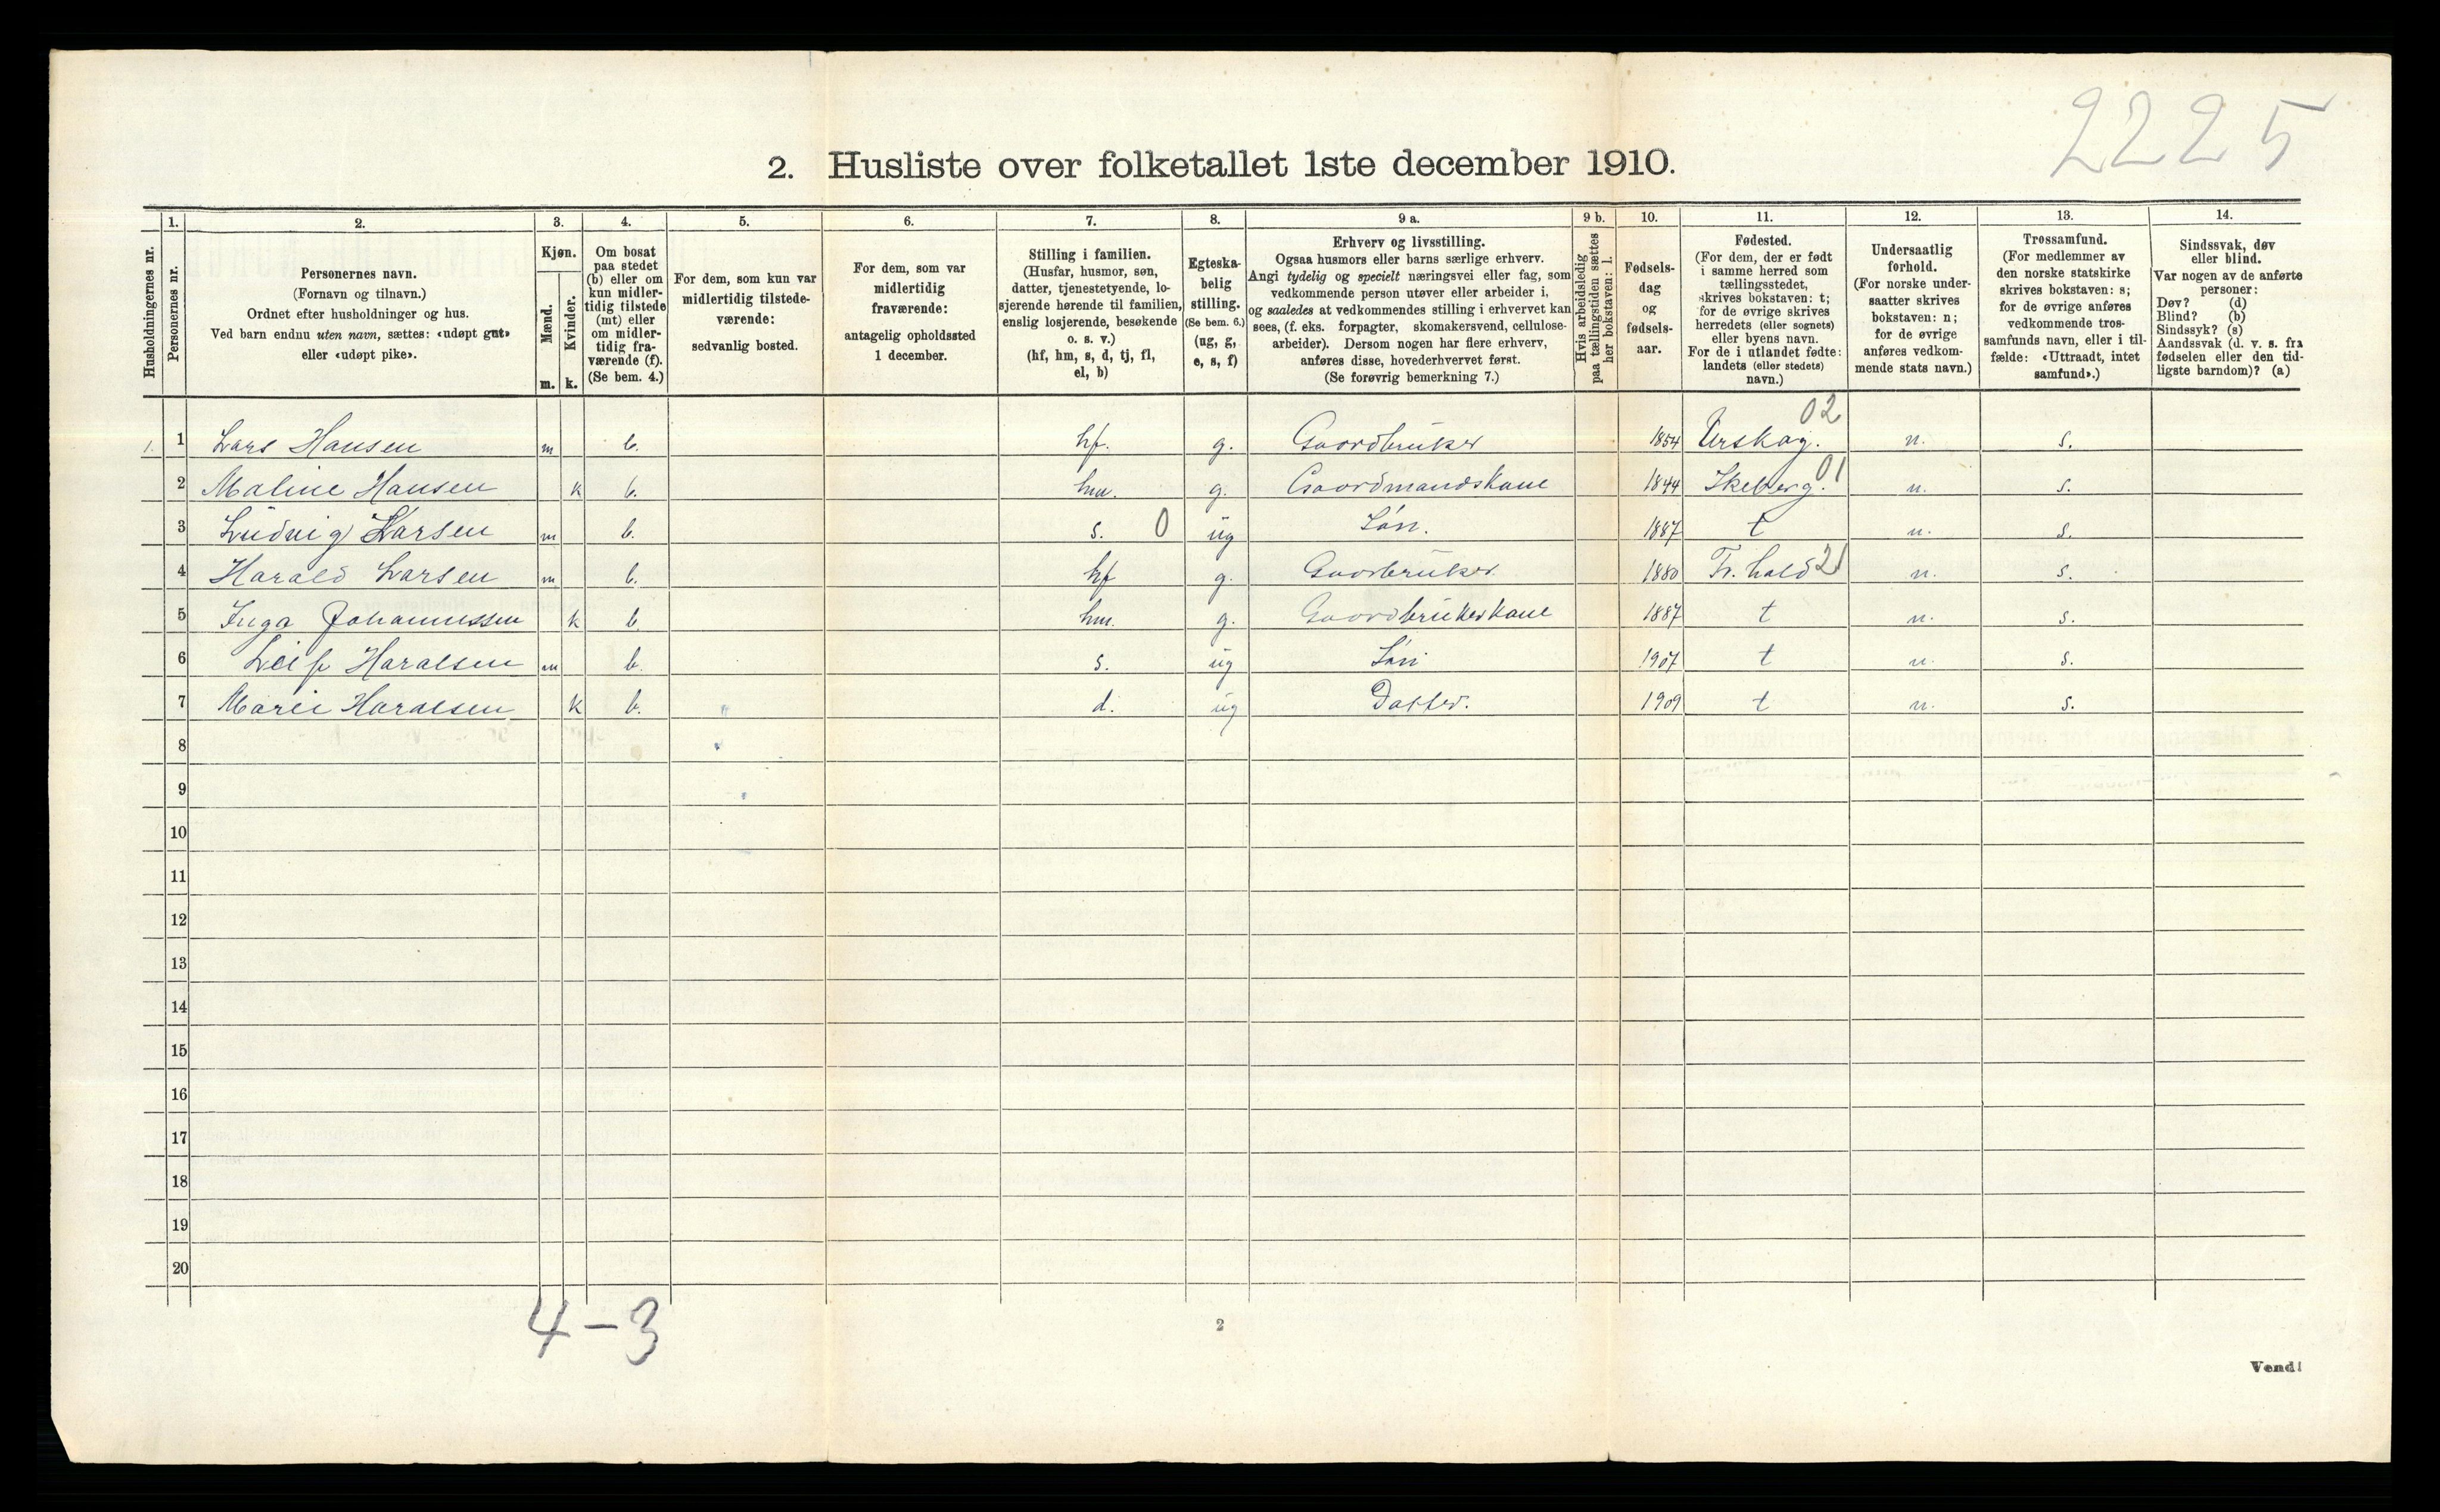 2225
2. Husliste over folketallet 1ste december 1910.
1. 2. 3. 4. 5. 6. 7. 8. 9 a. 9 b. 10. 11. 12. 13. 14.
Husholdningernes nr.
Personernes nr.
Personernes navn.
(Fornavn og tilnavn.)
Ordnet efter husholdninger og hus.
Ved barn endnu uten navn, sættes: «udøpt gut»
eller «udøpt pike».
Kjøn.
Mænd.
Kvinder.
m. k.
Om bosat
paa stedet
(b) eller om
kun midler-
tidig tilstede
(mt) eller
om midler-
tidig fra-
værende (f).
(Se bem. 4.)
For dem, som kun var
midlertidig tilstede-
værende:
sedvanlig bosted.
For dem, som var
midlertidig
fraværende:
antagelig opholdssted
1 december.
Stilling i familien.
(Husfar, husmor, søn,
datter, tjenestetyende, lo-
sjerende hørende til familien,
enslig losjerende, besøkende
o. s. v.)
(hf, hm, s, d, tj, fl,
el, b)
Egteska-
belig
stilling.
(Se bem. 6.)
(ug, g,
e, s, f)
Erhverv og livsstilling.
Ogsaa husmors eller barns særlige erhverv.
Angi tydelig og specielt næringsvei eller fag, som
vedkommende person utøver eller arbeider i,
og saaledes at vedkommendes stilling i erhvervet kan
sees, (f. eks. forpagter, skomakersvend, cellulose-
arbeider). Dersom nogen har flere erhverv,
anføres disse, hovederhvervet først.
(Se forøvrig bemerkning 7.)
Hvis arbeidsledig
paa tællingstiden sættes
her bokstaven: l.
Fødsels-
dag
og
fødsels-
aar.
Fødested.
(For dem, der er født
i samme herred som
tællingsstedet,
skrives bokstaven: t;
for de øvrige skrives
herredets (eller sognets)
eller byens navn.
For de i utlandet fødte:
landets (eller stedets)
navn.)
Undersaatlig
forhold.
(For norske under-
saatter skrives
bokstaven: n;
for de øvrige
anføres vedkom-
mende stats navn.)
Trossamfund.
(For medlemmer av
den norske statskirke
skrives bokstaven: s;
for de øvrige anføres
vedkommende tros-
samfunds navn, eller i til-
fælde: «Uttraadt, intet
samfund».)
Sindssvak, døv
eller blind.
Var nogen av de anførte
personer:
Døv? (d)
Blind? (b)
Sindssyk? (s)
Aandssvak (d. v. s. fra
fødselen eller den tid-
ligste barndom)? (a)
1. 1 Lars Hansen m b. hf. g. Gaordbruker 1854 Urskog. 02 n. s.
2 Maline Hansen k b. hm. g. Gaordmandskone 1844 Skeberg. 01 n. s.
3 Ludvig Larsen m b. s. 0 ug Søn. 1887 t n. s.
4 Harald Larsen m b. hf g. Gaorbruker 1880 Fr. hald 21 n. s.
5 Inga Johannessen k b hm. g. Gaordbrukerkone 1887 t n. s.
6 Leif Haralsen m b. s. ug Søn 1907 t n. s.
7 Marie Haralsen k b. d. ug Datter. 1909 t n. s.
8
9
10
11
12
13
14
15
16
17
18
19
20
4-3
2
Vend!